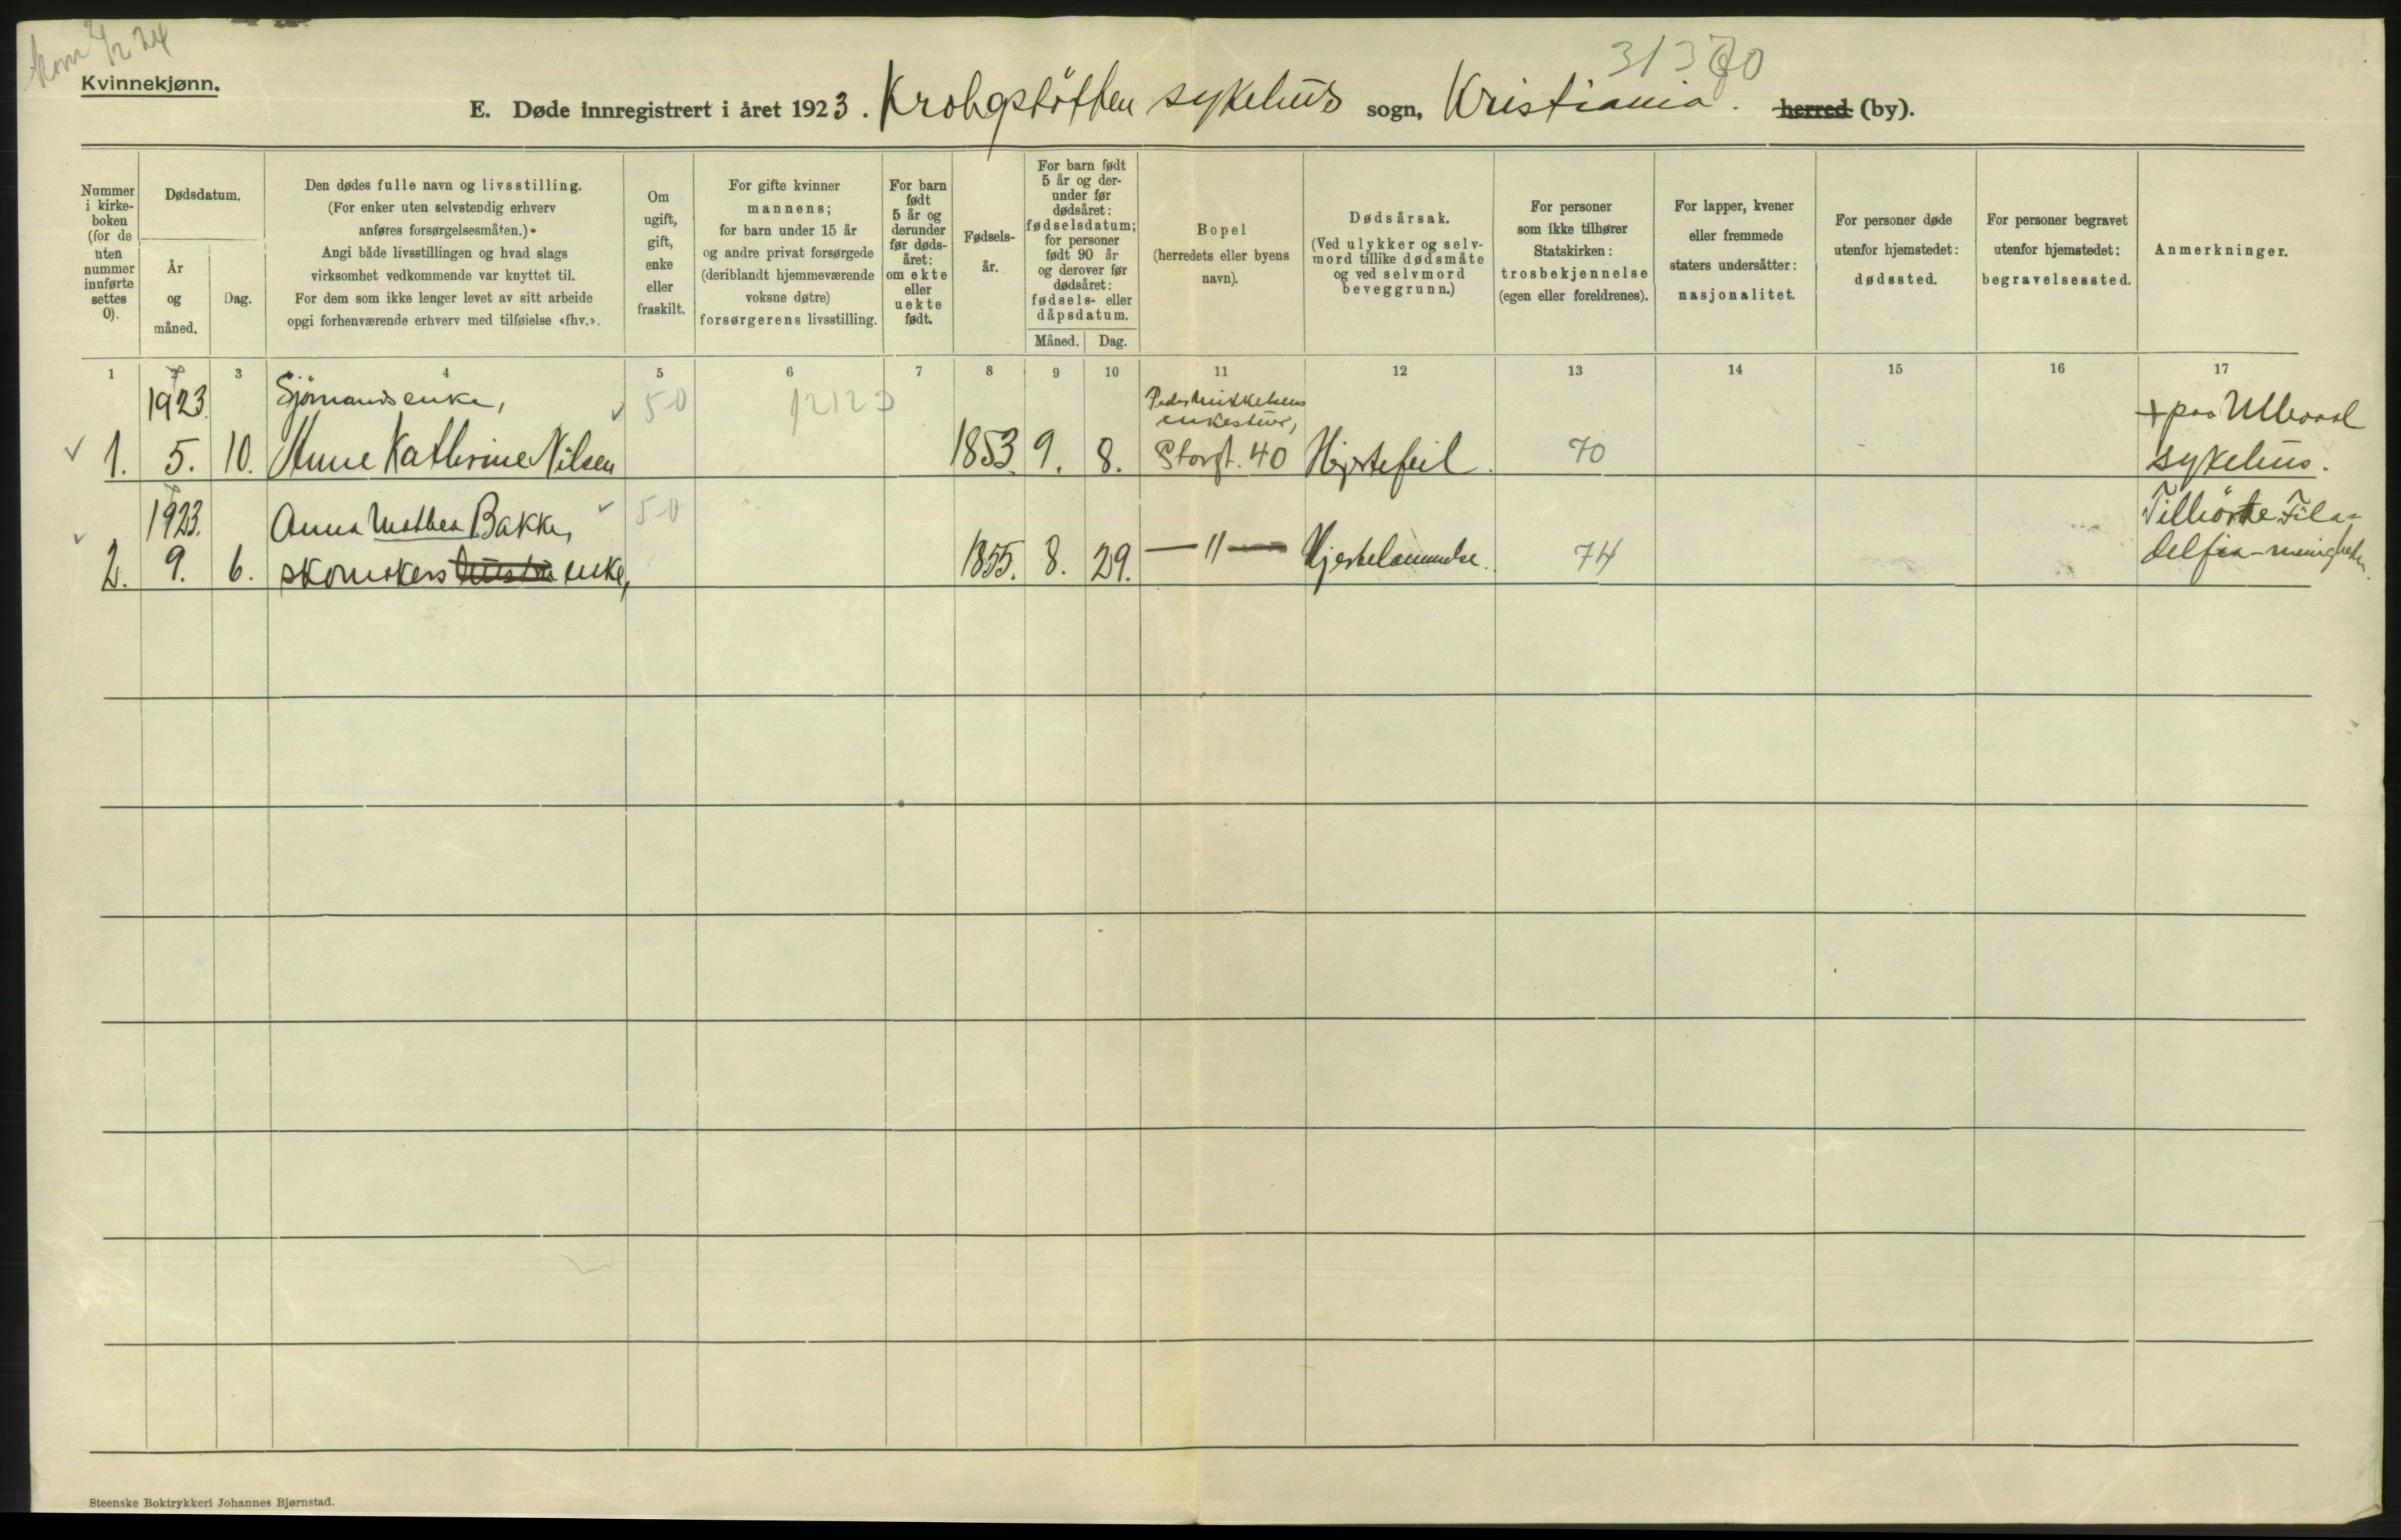 kom 2/2 24
31370
Kvinnekjønn.
E. Døde innregistrert i året 1923. Krohgstötten sykehus sogn, Kristiania. herred (by).
Nummer
i kirke-
boken
(for de
uten
nummer
innførte
settes
0).
Dødsdatum.
År
og
måned.
Dag.
Den dødes fulle navn og livsstilling.
(For enker uten selvstendig erhverv
anføres forsørgelsesmåten.)
Angi både livsstillingen og hvad slags
virksomhet vedkommende var knyttet til.
For dem som ikke lenger levet av sitt arbeide
opgi forhenværende erhverv med tilføielse «fhv.».
Om
ugift,
gift,
enke
eller
fraskilt.
For gifte kvinner
mannens;
for barn under 15 år
og andre privat forsørgede
(deriblandt hjemmeværende
voksne døtre)
forsørgerens livsstilling.
For barn
født
5 år og
derunder
før døds-
året:
om ekte
eller
uekte
født.
Fødsels-
år.
For barn født
5 år og der-
under før
dødsåret:
fødselsdatum;
for personer
født 90 år
og derover før
dødsåret:
fødsels- eller
dåpsdatum.
Måned. Dag.
Bopel
(herredets eller byens
navn).
Dødsårsak.
(Ved ulykker og selv-
mord tillike dødsmåte
og ved selvmord
beveggrunn.)
For personer
som ikke tilhører
Statskirken:
trosbekjennelse
(egen eller foreldrenes).
For lapper, kvener
eller fremmede
staters undersåtter:
nasjonalitet.
For personer døde
utenfor hjemstedet:
dødssted.
For personer begravet
utenfor hjemstedet:
begravelsessted.
Anmerkninger.
1 2 3 4 5 6 7 8 9 10 11 12 13 14 15 16 17
1923. Sjömandsenke, 50 12123 Peder Mikkelsens
enkestue, + paa Ullevaal
1. 5. 10. Anne Kathrine Nilsen 1853. 9. 8. Storgt. 40 Hjertefeil. 70 sykehus.
1923. Anna Mathea Bakke, 50 Tilhörte Fila-
2. 9. 6. skomakers hustru enke, 1855. 8. 29. — 11 — Hjertelammelse. 74 delfia-menigheten.
Steenske Boktrykkeri Johannes Bjørnstad.